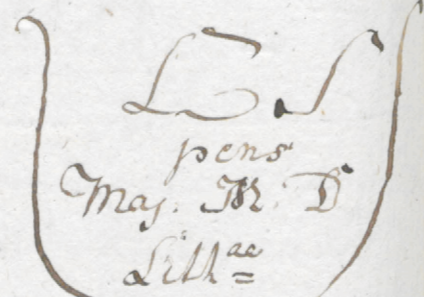 L. S
pens
Maj. M. D
Lithae